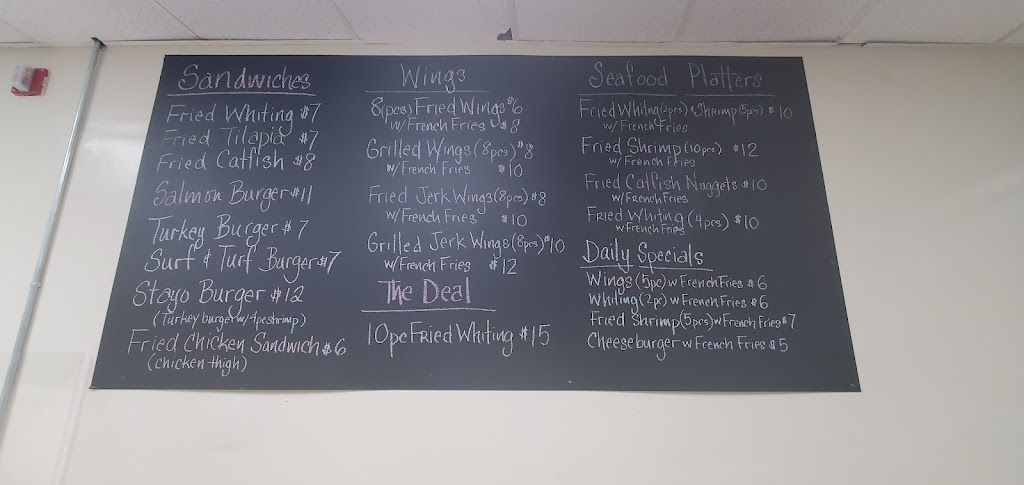 Sandwiches
Fried Whiting $7
Fried Tilapia $7
Fried Catfish $8
Salmon Burger $11
Turkey Burger $7
Surf & Turf Burger $7
Stayo Burger $12
(Turkey burger w/ 4pc shrimp)
Fried Chicken Sandwich $6
(chicken thigh)
Wings
8(pcs) Fried Wings $6
w/ French Fries $8
Grilled Wings (8pcs) $8
w/ French Fries $10
Fried Jerk Wings (8pcs) $8
w/ French Fries $10
Grilled Jerk Wings (8pcs) $10
w/ French Fries $12
The Deal
10pc Fried Whiting $15
Seafood Platters
Fried Whiting (2pcs) & Shrimp (5pcs) $10
w/ French Fries
Fried Shrimp (10pcs) $12
w/ French Fries
Fried Catfish Nuggets $10
w/ French Fries
Fried Whiting (4pcs) $10
w French Fries
Daily Specials
Wings (5pc) w French Fries $6
Whiting (2pc) w French Fries $6
Fried Shrimp (5pcs) w French Fries $7
Cheeseburger w French Fries $5